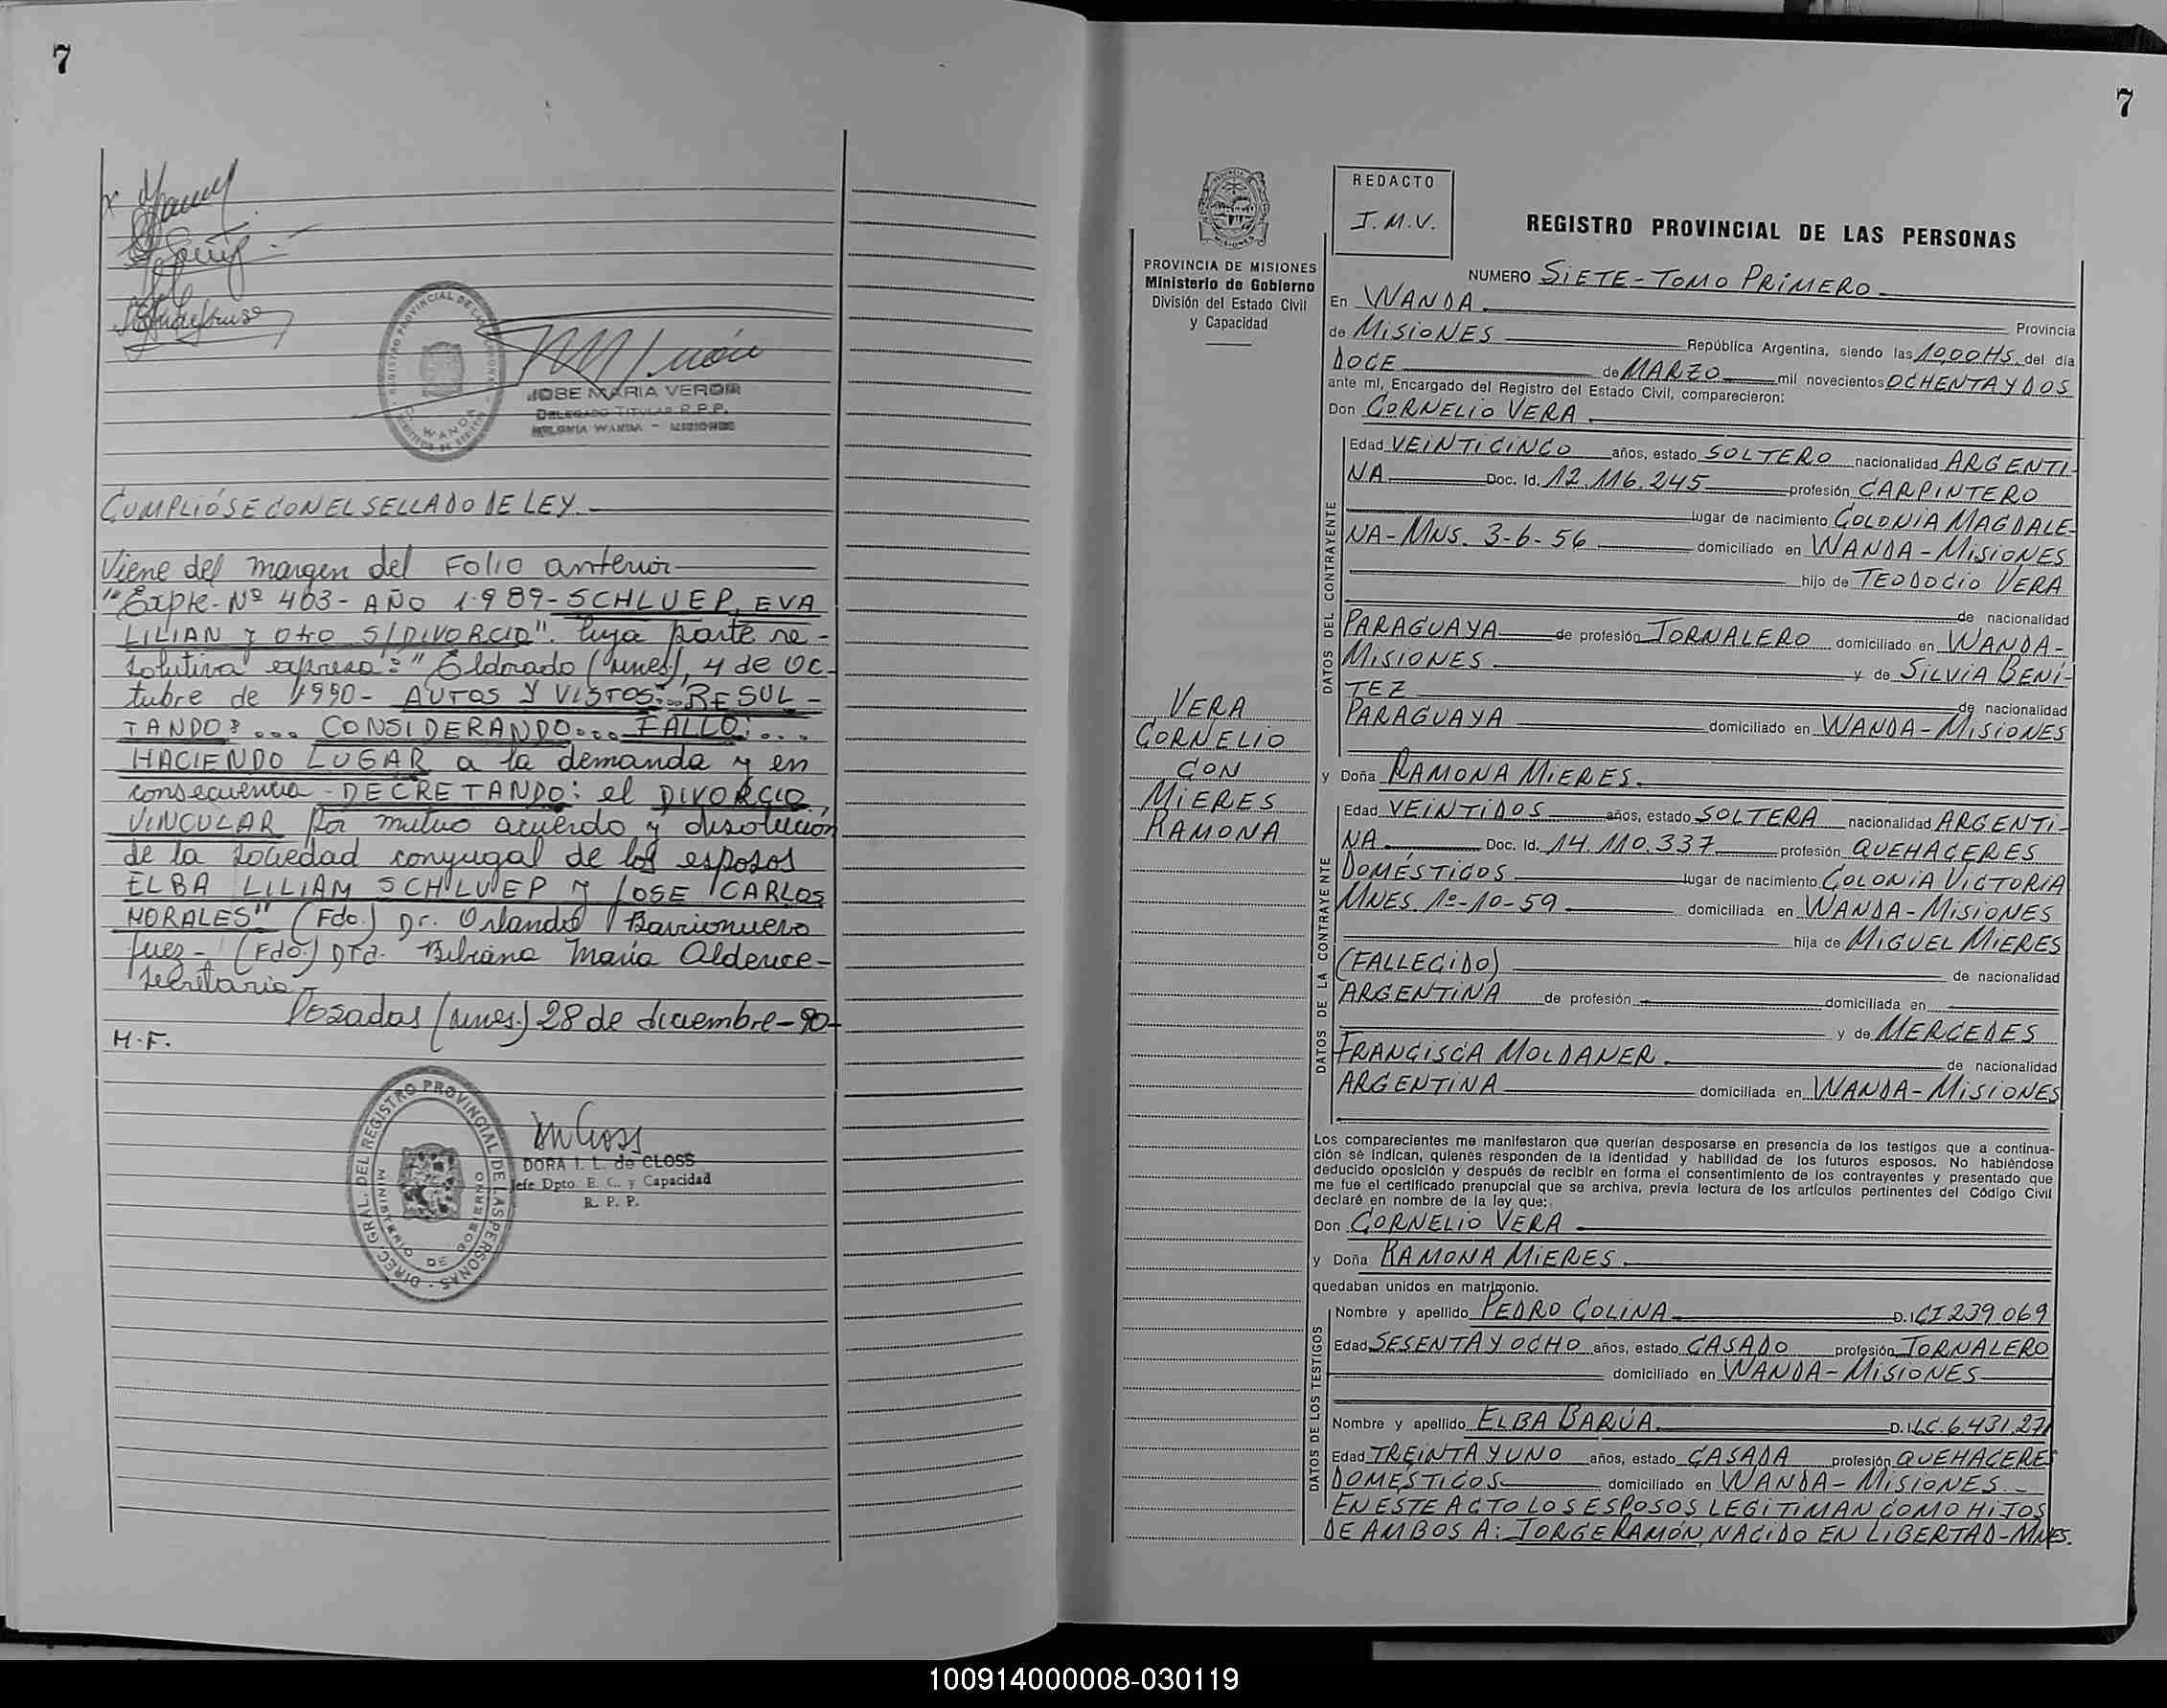 7
JOSE MARIA VERON
DELEGADO TITULAR R.P.P.
COLONIA WANDA - MISIONES
CUMPLIÓSE CON EL SELLADO DE LEY.
Viene del margen del Folio anterior
"Expte-Nº 463-AÑO 1989-SCHLUEP, EVA
LILIAN y otro S/DIVORCIO". Cuya parte re-
solutiva expresa: "Eldorado (mnes), 4 de Oc-
tubre de 1990- AUTOS Y VISTOS:.. RESUL-
TANDO:... CONSIDERANDO... FALLO:...
HACIENDO LUGAR a la demanda y en
consecuencia-DECRETANDO: el DIVORCIO
VINCULAR por mutuo acuerdo y disolución
de la sociedad conyugal de los esposos
ELBA LILIAM SCHLUEP y JOSE CARLOS
MORALES" (Fdo.) Dr. Orlando Barrionuevo
Juez- (Fdo.) Dra. Bibiana María Alderice-
Secretaria-
Posadas (mnes.) 28 de diciembre-90-
H.F.
DIREC. GRAL. DEL REGISTRO PROVINCIAL DE LAS PERSONAS
MINISTERIO DE GOBIERNO
DORA I. L. de CLOSS
Jefe Dpto. E. C. y Capacidad
R. P. P.
7
PROVINCIA DE MISIONES
Ministerio de Gobierno
División del Estado Civil
y Capacidad
VERA
CORNELIO
CON
MIERES
RAMONA
REDACTO
I.M.V.
REGISTRO PROVINCIAL DE LAS PERSONAS
NUMERO SIETE-TOMO PRIMERO
En WANDA Provincia
de MISIONES República Argentina, siendo las 10,00 HS. del día
DOCE de MARZO mil novecientos OCHENTA Y DOS
ante mí, Encargado del Registro del Estado Civil, comparecieron:
Don CORNELIO VERA
DATOS DEL CONTRAYENTE
Edad VEINTICINCO años, estado SOLTERO nacionalidad ARGENTI-
NA Doc. Id. 12.116.245 profesión CARPINTERO
lugar de nacimiento COLONIA MAGDALE-
NA-MNS. 3-6-56 domiciliado en WANDA-MISIONES
hijo de TEODOCIO VERA
de nacionalidad
PARAGUAYA de profesión JORNALERO domiciliado en WANDA-
MISIONES y de SILVIA BENI-
TEZ de nacionalidad
PARAGUAYA domiciliado en WANDA-MISIONES
y Doña RAMONA MIERES.
DATOS DE LA CONTRAYENTE
Edad VEINTIDOS años, estado SOLTERA nacionalidad ARGENTI-
NA Doc. Id. 14.110.337 profesión QUEHACERES
DOMÉSTICOS lugar de nacimiento COLONIA VICTORIA
MNES. 1º-10-59 domiciliada en WANDA-MISIONES
hija de MIGUEL MIERES
(FALLECIDO) de nacionalidad
ARGENTINA de profesión domiciliada en
y de MERCEDES
FRANCISCA MOLDANER. de nacionalidad
ARGENTINA domiciliada en WANDA-MISIONES
Los comparecientes me manifestaron que querían desposarse en presencia de los testigos que a continua-
ción se indican, quienes responden de la identidad y habilidad de los futuros esposos. No habiéndose
deducido oposición y después de recibir en forma el consentimiento de los contrayentes y presentado que
me fue el certificado prenupcial que se archiva, previa lectura de los artículos pertinentes del Código Civil
declaré en nombre de la ley que:
Don CORNELIO VERA
y Doña RAMONA MIERES.
quedaban unidos en matrimonio.
DATOS DE LOS TESTIGOS
Nombre y apellido PEDRO COLINA D.I. CI 239.069
Edad SESENTA Y OCHO años, estado CASADO profesión JORNALERO
domiciliado en WANDA-MISIONES
Nombre y apellido ELBA BARÚA. D.I. LC.6.431.271
Edad TREINTA Y UNO años, estado CASADA profesión QUEHACERES
DOMÉSTICOS domiciliado en WANDA-MISIONES.-
EN ESTE ACTO LOS ESPOSOS LEGITIMAN COMO HIJOS
DE AMBOS A: JORGE RAMÓN, NACIDO EN LIBERTAD-MNES.
100914000008-030119